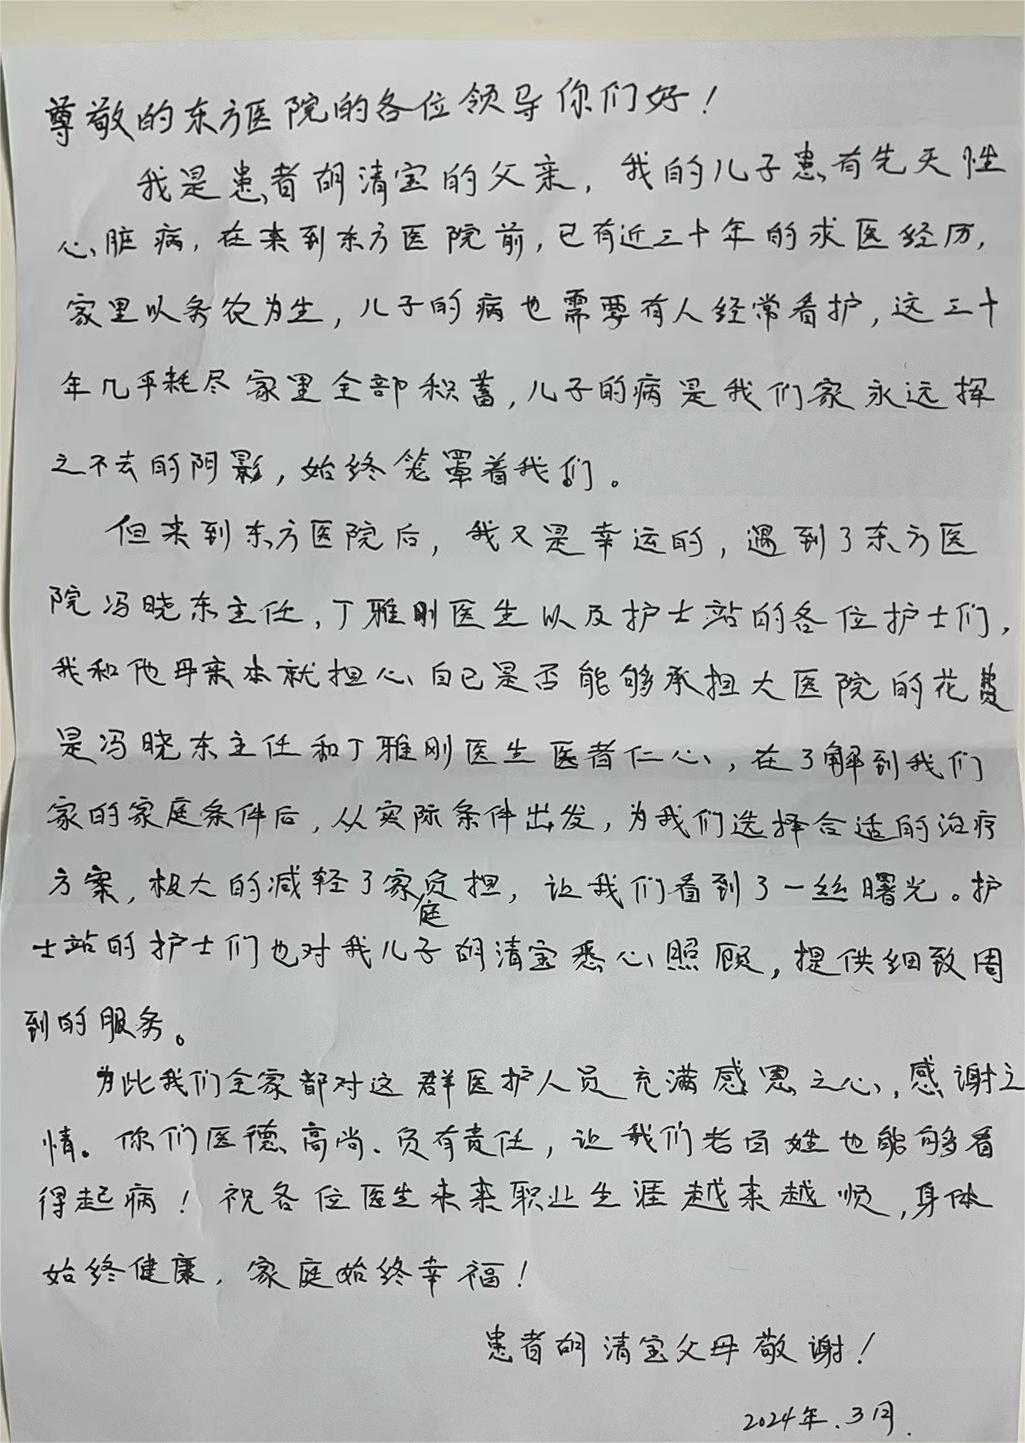 尊敬的东方医院的各位领导你们好！
我是患者胡清宝的父亲，我的儿子患有先天性
心脏病，在来到东方医院前，已有近三十年的求医经历，
家里以务农为生，儿子的病也需要有人经常看护，这三十
年几乎耗尽家里全部积蓄，儿子的病是我们家永远挥
之不去的阴影，始终笼罩着我们。
但来到东方医院后，我又是幸运的，遇到了东方医
院冯晓东主任，丁雅刚医生以及护士站的各位护士们，
我和他母亲本就担心自己是否能够承担大医院的花费
是冯晓东主任和丁雅刚医生医者仁心，在了解到我们
家的家庭条件后，从实际条件出发，为我们选择合适的治疗
方案，极大的减轻了家庭负担，让我们看到了一丝曙光。护
士站的护士们也对我儿子胡清宝悉心照顾，提供细致周
到的服务。
为此我们全家都对这群医护人员充满感恩之心，感谢之
情。你们医德高尚、负有责任，让我们老百姓也能够看
得起病！祝各位医生未来职业生涯越来越顺，身体
始终健康，家庭始终幸福！
患者胡清宝父母敬谢！
2024年.3月.